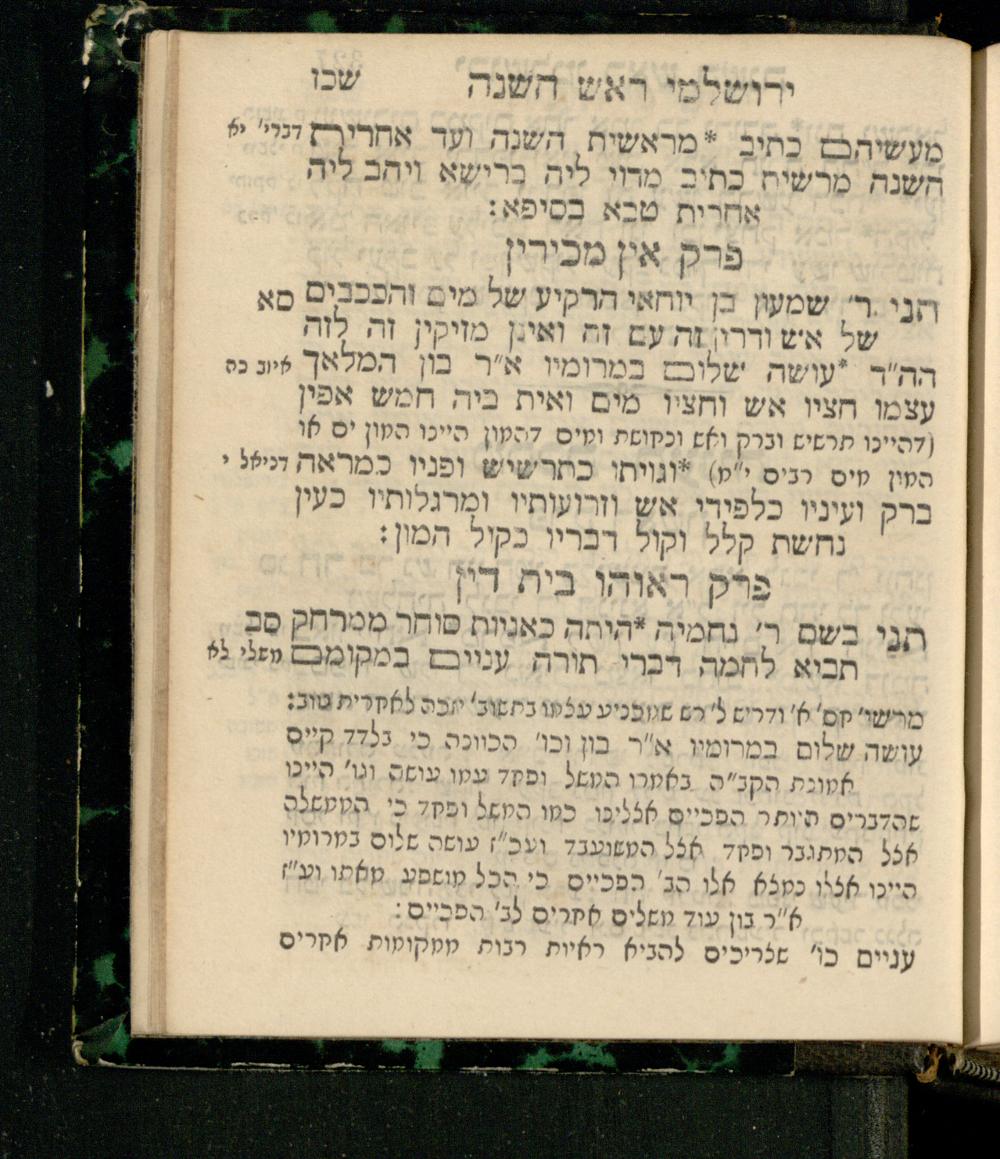 ירושלמי ראש השנה שכו
מעשיהם כתיב *מראשית השנה ועד אחרית דברי' יא
השנה מרשית כתיב מדוי ליה ברישא ויהב ליה
אחרית טבא בסיפא:
פרק אין מכירין
תני ר' שמעון בן יוחאי הרקיע של מים והככבים סא
של אש ודרין זה עם זה ואינן מזיקין זה לזה
הה"ד *עושה שלום במרומיו א"ר בון המלאך איוב כה
עצמו חציו אש וחציו מים ואית ביה חמש אפין
(דהיינו תרשיש וברק ואש ונחושת ומים דהמון היינו המון ים או
המון מים רבים י"מ) *וגויתו כתרשיש ופניו כמראה דניאל י
ברק ועיניו כלפידי אש וזרועותיו ומרגלותיו כעין
נחשת קלל וקול דבריו כקול המון:
פרק ראוהו בית דין
תני בשם ר' נחמיה *היתה כאניות סוחר ממרחק סב
תביא לחמה דברי תורה עניים במקומם משלי לא
מרישי' חס' א' ודריש ל' רש שמכניע עצמו בתשוב' יזכה לאחרית טוב:
עושה שלום במרומיו א"ר בון וכו' הכוונה כי בלדד קיים
אמונת הקב"ה באמרו המשל ופחד עמו עושה וגו' היינו
שהדברים היותר הפכיים אצלינו כמו המשל ופחד כי הממשלה
אצל המתגבר ופחד אצל המשועבד ועכ"ז עושה שלום במרומיו
היינו אצלו נמצא אלו הב' הפכיים כי הכל מושפע מאתו וע"ז
א"ר בון עוד משלים אחרים לב' הפכיים:
עניים כו' שצריכים להביא ראיות רבות ממקומות אחרים